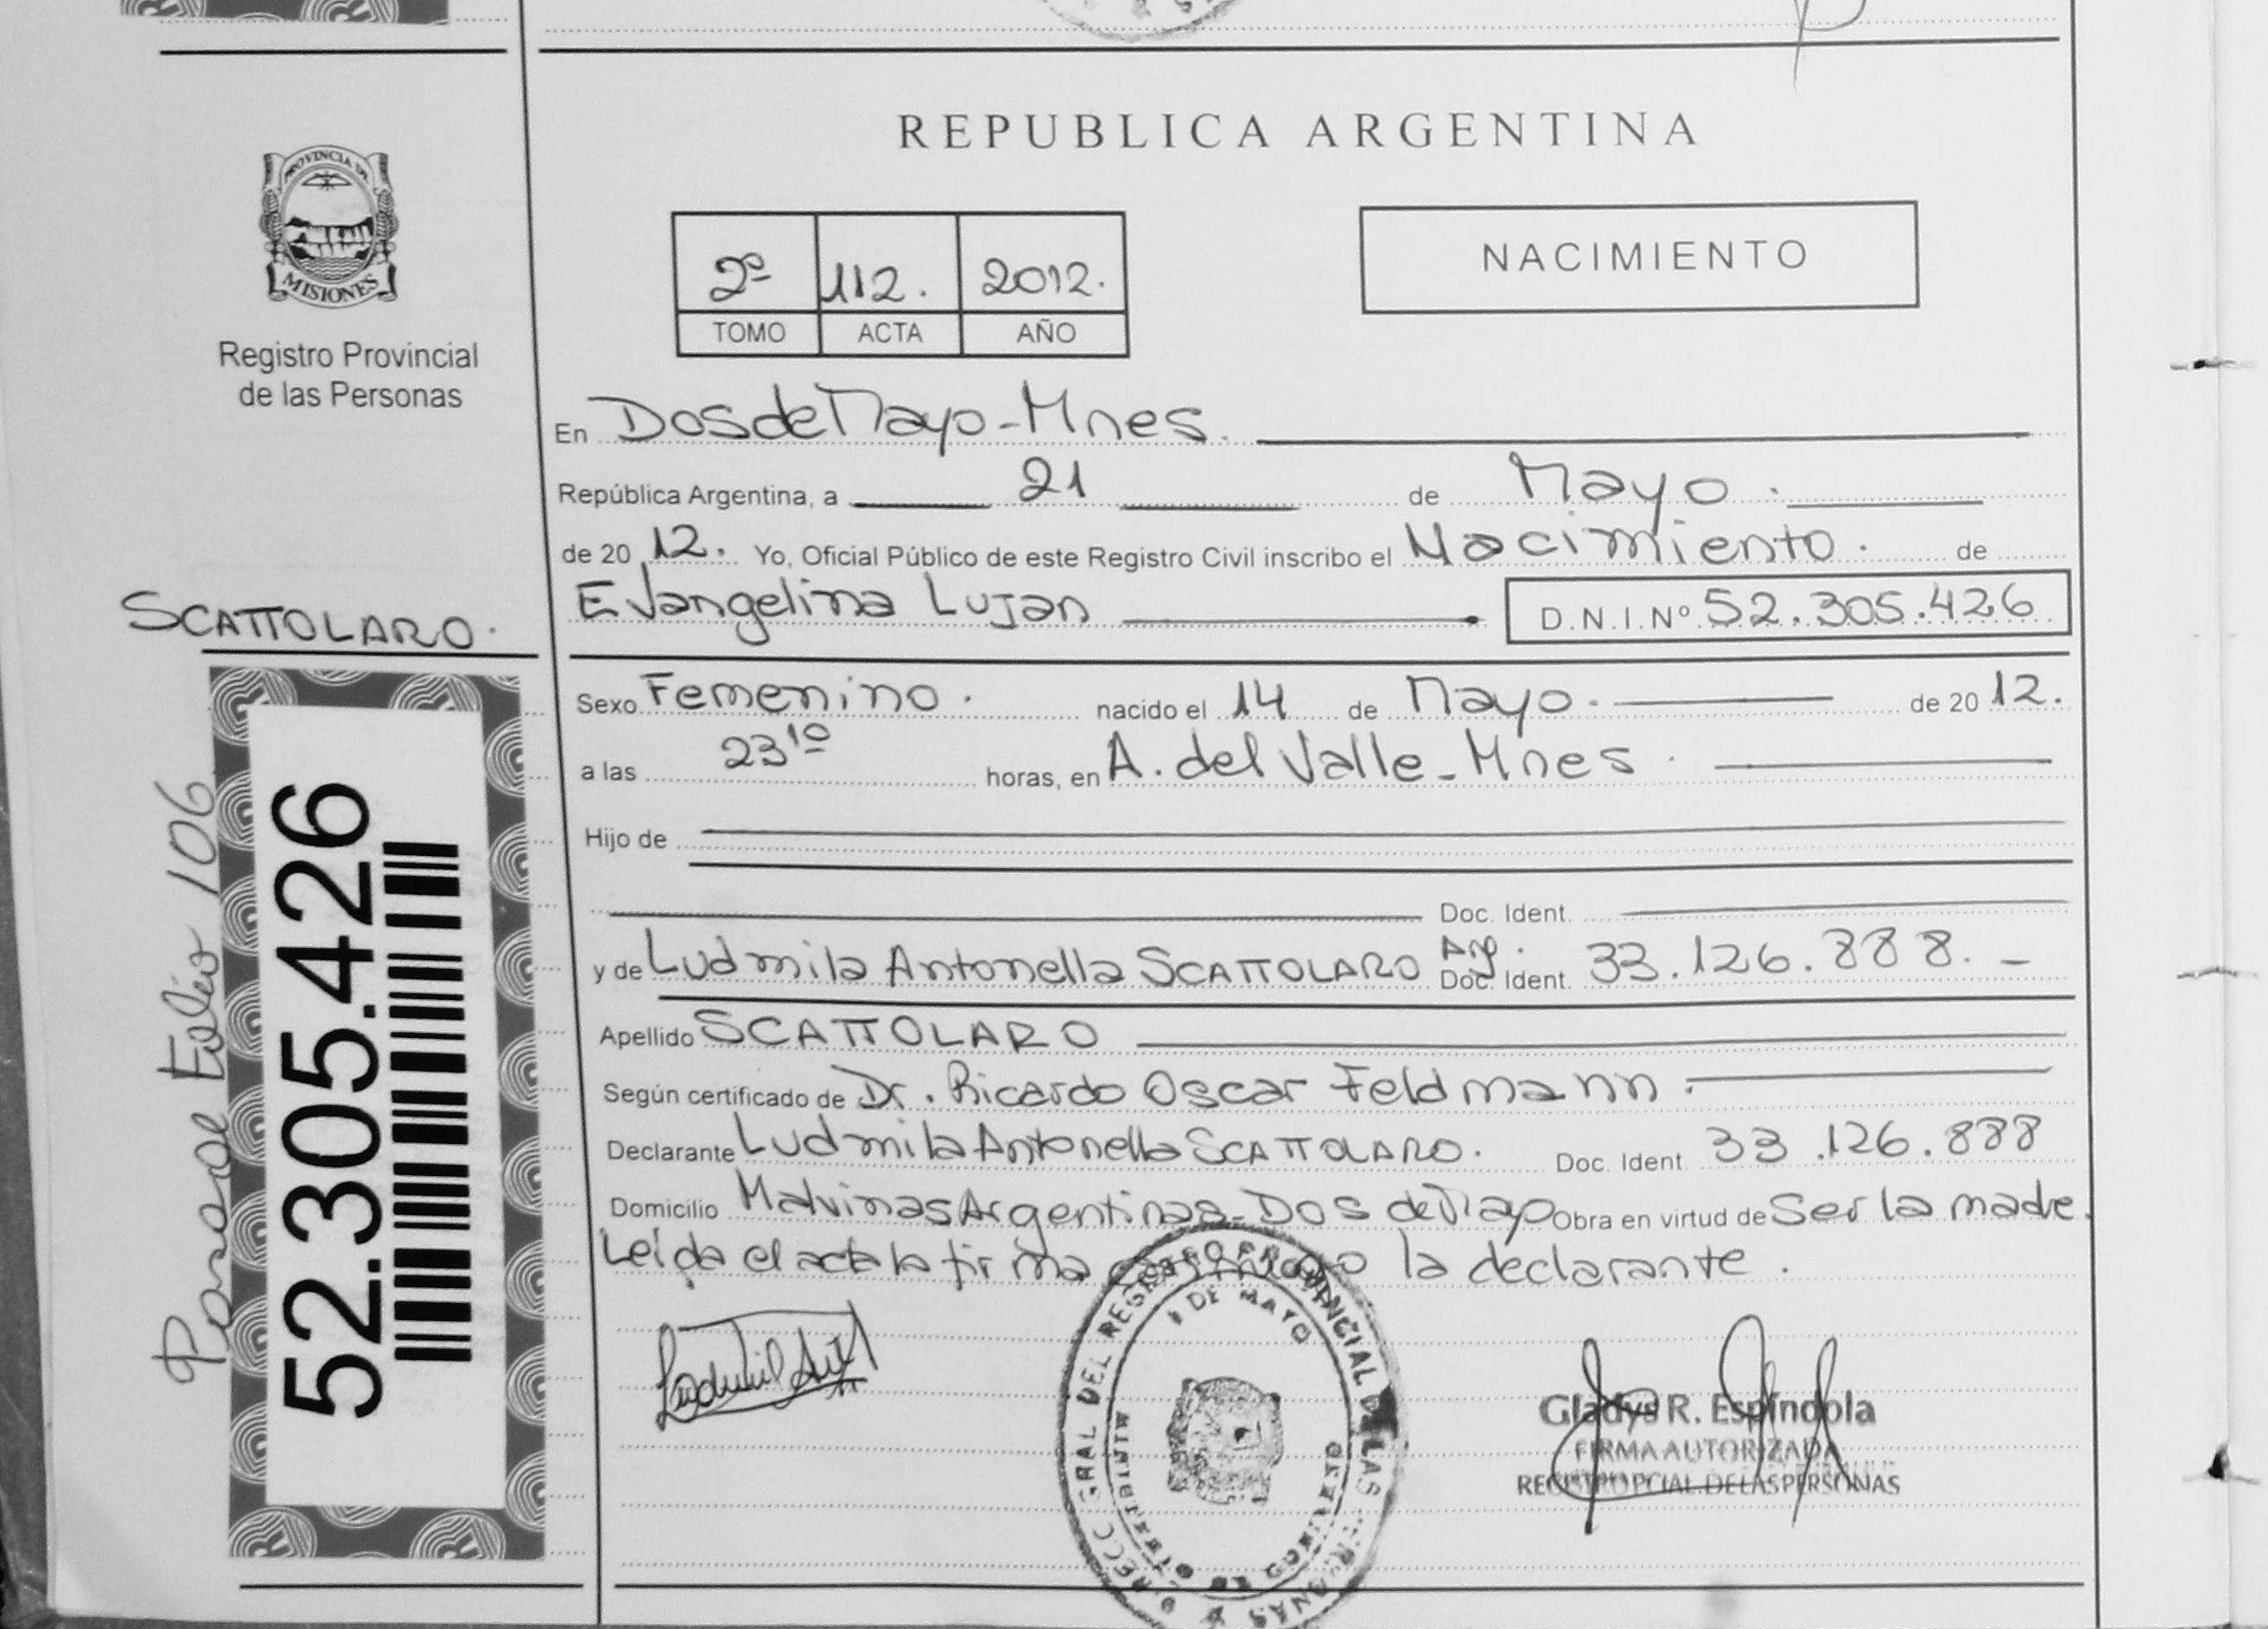 REPUBLICA ARGENTINA
PROVINCIA DE
MISIONES
Registro Provincial
de las Personas
2º 112. 2012.
TOMO ACTA AÑO
NACIMIENTO
En Dos de Mayo - Mnes.
República Argentina, a 21 de Mayo.
de 20 12. Yo, Oficial Público de este Registro Civil inscribo el Nacimiento. de
SCATTOLARO.
Evangelina Lujan D.N.I.Nº 52.305.426
Sexo Femenino. nacido el 14 de Mayo. de 20 12.
a las 23 10 horas, en A. del Valle - Mnes.
Hijo de
Doc. Ident.
y de Ludmila Antonella SCATTOLARO Arg. Doc. Ident. 33.126.888. -
Apellido SCATTOLARO
Según certificado de Dr. Ricardo Oscar Feldmann.
Declarante Ludmila Antonella SCATTOLARO. Doc. Ident 33.126.888
Domicilio Malvinas Argentinas - Dos de Mayo Obra en virtud de Ser la madre.
Leída el acta la firma conmigo la declarante.
Folio 106
52.305.426
DEL REGISTRO PROVINCIAL DE LAS
DE MAYO
MINISTERIO DE GOBIERNO
Gladys R. Espíndola
FIRMA AUTORIZADA
REGISTRO PCIAL. DE LAS PERSONAS